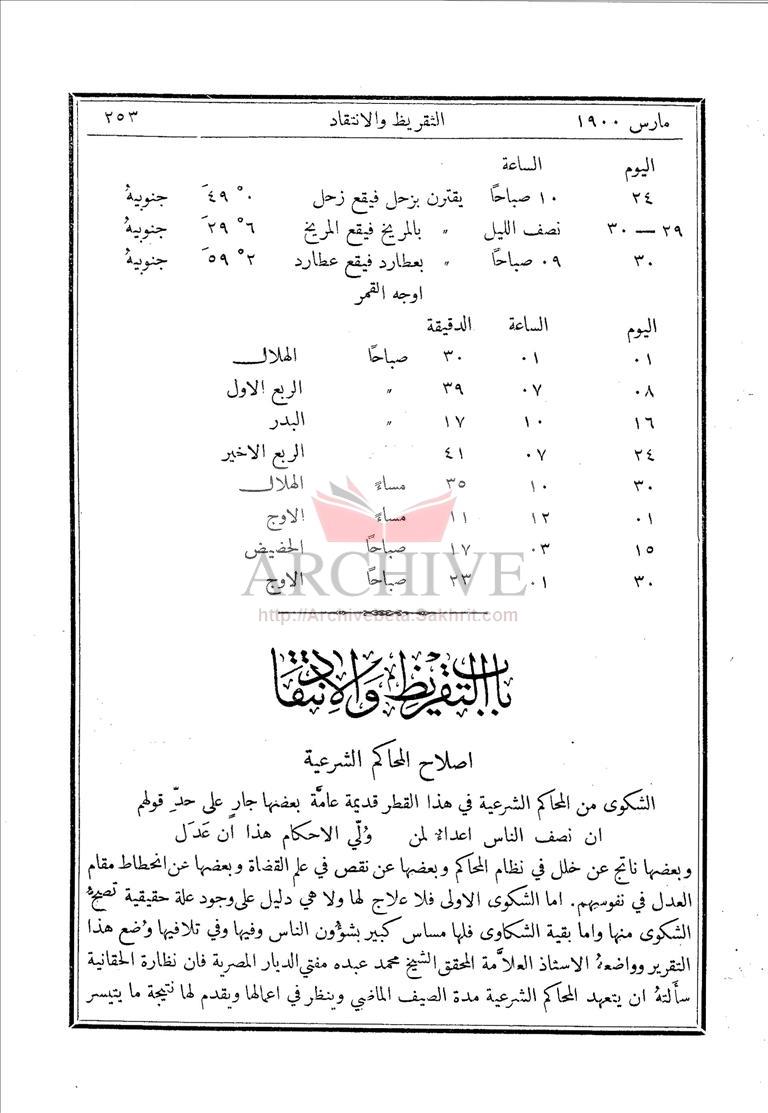 مارس ١٩٠٠ التقريظ والانتقاد ٢٥٣
اليوم الساعة
٢٤ ١٠ صباحًا يقترن بزحل فيقع زحل ٠° ٤٩َ جنوبيهُ
٢٩ — ٣٠ نصف الليل " بالمريخ فيقع المريخ ٦° ٢٩َ جنوبيهُ
٣٠ ٠٩ صباحًا " بعطارد فيقع عطارد ٢° ٥٩َ جنوبيهُ
اوجه القمر
اليوم الساعة الدقيقة
٠١ ٠١ ٣٠ صباحًا الهلال
٠٨ ٠٧ ٣٩ " الربع الاول
١٦ ١٠ ١٧ " البدر
٢٤ ٠٧ ٤١ الربع الاخير
٣٠ ١٠ ٣٥ مساءً الهلال
٠١ ١٢ ١١ مساءً الاوج
١٥ ٠٣ ١٧ صباحًا الحضيض
٣٠ ٠١ ٢٣ صباحًا الاوج
ARCHIVE
http://Archivebeta.Sakhrit.com
باب التقريظ والانتقاد
اصلاح المحاكم الشرعية
الشكوى من المحاكم الشرعية في هذا القطر قديمة عامَّة بعضها جارٍ على حدِّ قولهم
ان نصف الناس اعداءٌ لمن وُلّي الاحكام هذا ان عَدَل
وبعضها ناتج عن خلل في نظام المحاكم وبعضها عن نقص في علم القضاة وبعضها عن انحطاط مقام
العدل في نفوسهم. اما الشكوى الاولى فلا علاج لها ولا هي دليل على وجود علة حقيقية تصحُّ
الشكوى منها واما بقية الشكاوى فلها مساس كبير بشؤون الناس وفيها وفي تلافيها وُضع هذا
التقرير وواضعهُ الاستاذ العلاَّمة المحقق الشيخ محمد عبده مفتي الديار المصرية فان نظارة الحقانية
سألتهُ ان يتعهد المحاكم الشرعية مدة الصيف الماضي وينظر في اعمالها ويقدم لها نتيجة ما يتيسر